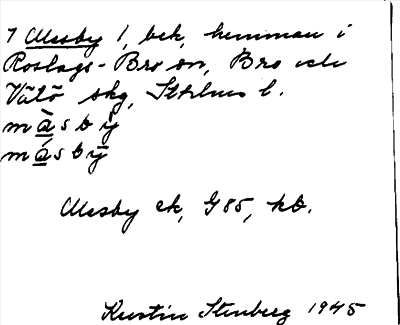 7 Massby 1, bek, hemman i
Roslags-Bro sn, Bro och
Vätö skg, Sthlms l.
màsbÿ
másbȳ
Massby ek, G85, kb.
Kerstin Stenberg 1945